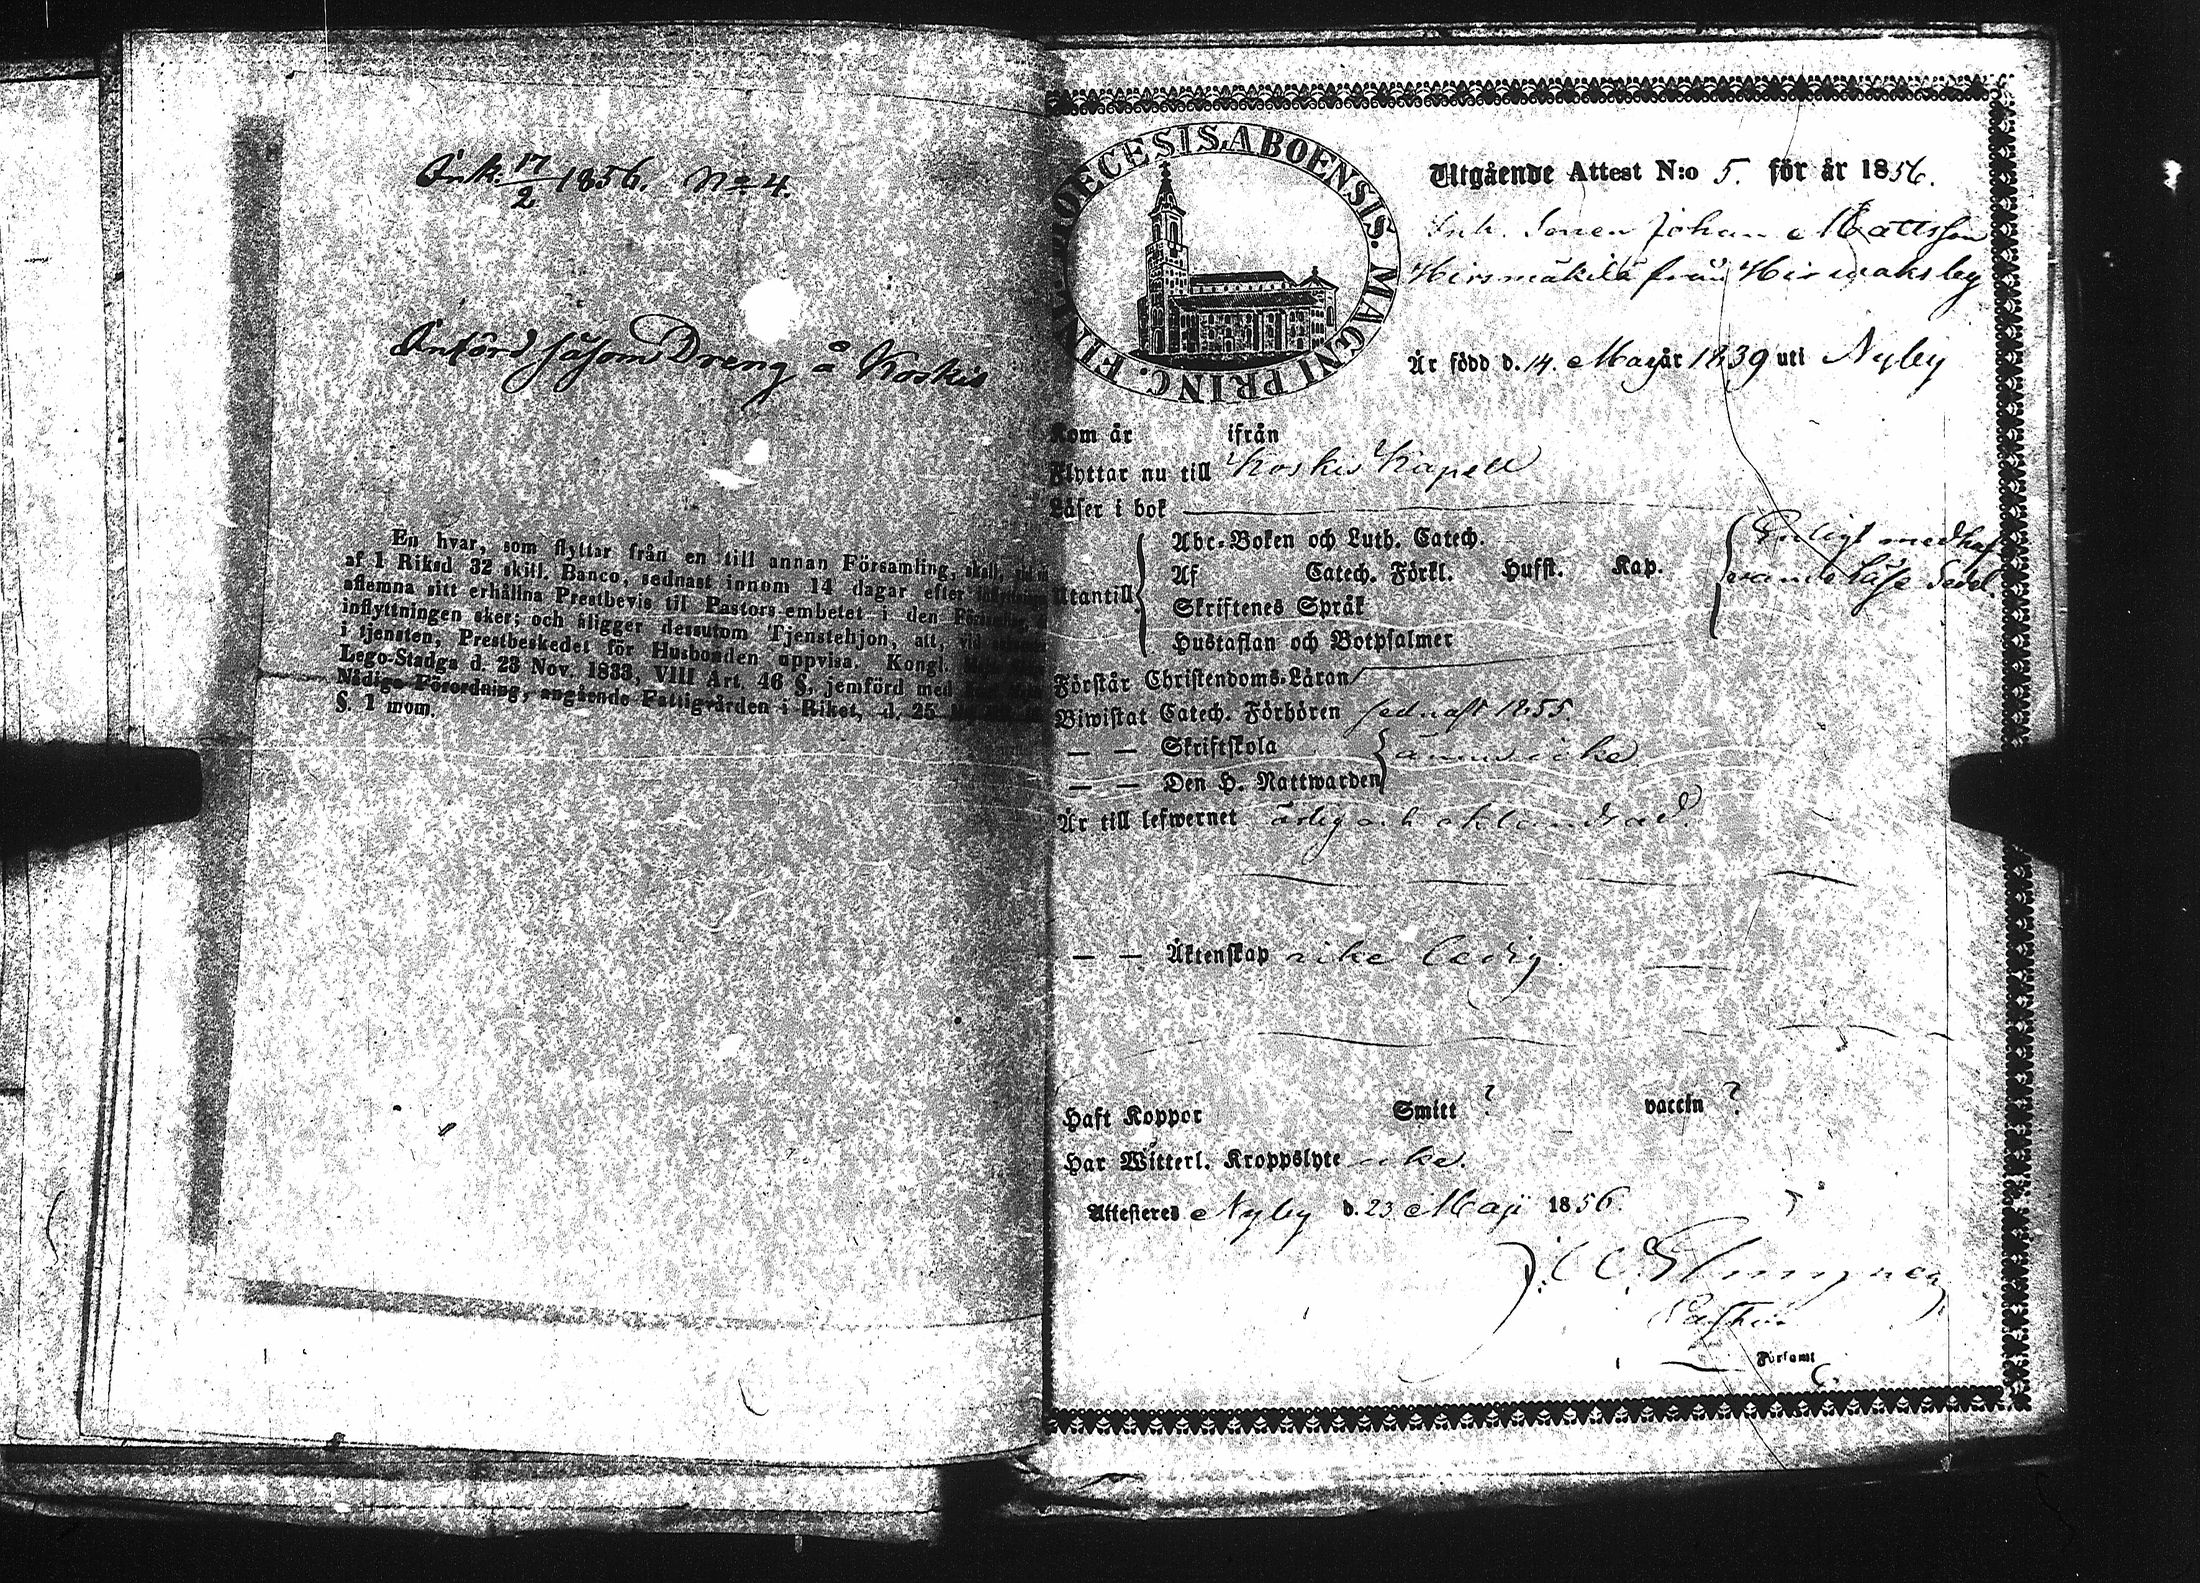 Ink. 17/2 1856. No 4.
Införd såsom Dreng å Koskis
En hvar, som flyttar från en till annan Församling, skall, vid
af 1 Riksd 32 skill. Banco, sednast innom 14 dagar efter
aflemna sitt erhållna Prestbevis til Pastors-embetet i den
inflyttningen sker; och åligger dessutom Tjenstehjon, att, vid
i tjensten, Prestbeskedet för Husbonden uppvisa. Kongl.
Lego-Stadga d. 23 Nov. 1833, VIII Art. 46 §, jemförd med
Nådiga Förordning, angående Fattigvården i Riket, d. 25
§. 1 mom.
DIOECESIS ABOENSIS. MAGNI PRINC. FIN
Utgående Attest N:o 5. för år 1856.
Inh. Sonen Johan Mattsson
Hirsmäkilä från Hirmaksby
Är född d. 14. Maj år 1839 uti Nyby
Kom år ifrån
Flyttar nu till Koskis Kapell
Läser i bok
Utantill
Abc-Boken och Luth. Catech.
Af Catech. Förkl. Husst. Kap.
Skriftenes Språk
Hustaflan och Botpsalmer
Enligt medhaf
vande Läse Sedel.
Förstår Christendoms-Läran
Biwistat Catech. Förhören sednast 1855.
— — Skriftskola
ännu icke
— — Den H. Nattwarden
Är till lefwernet ärlig och oklandrad.
— — Äktenskap icke ledig.
Haft Koppor Smitt ? vaccin ?
Har Witterl. Kroppslyte icke.
Attesteres Nyby d. 23 Maji 1856.
Pastor
Församl